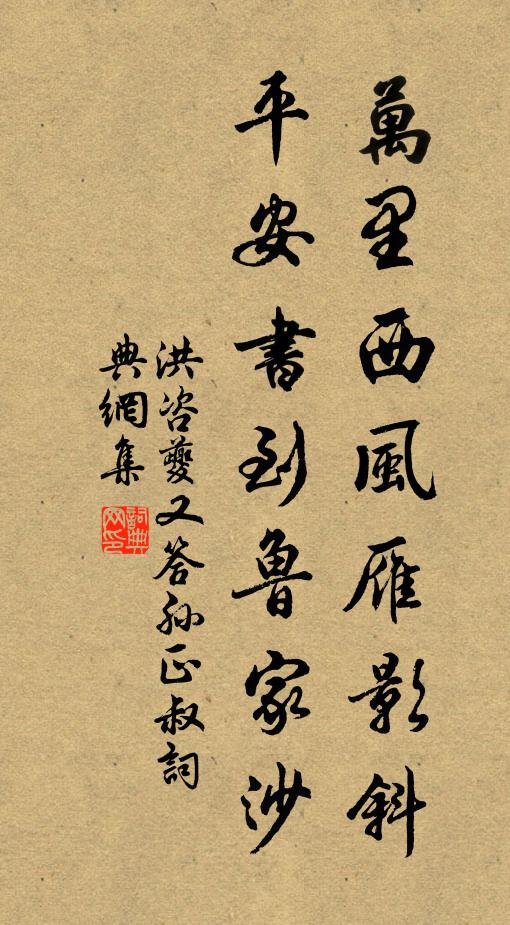 萬里西風雁影斜
平安書到魯家沙
洪咨夔又答孫正叔詞
典網集
詞典網印